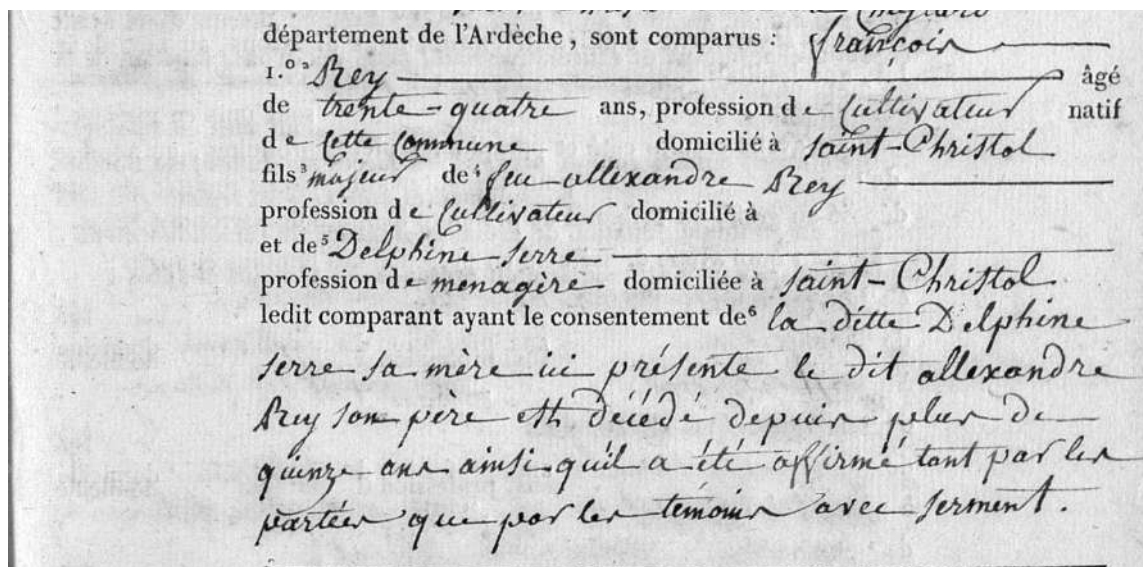 département de l'Ardèche, sont comparus : françois
1.º ² Rey âgé
de trente-quatre ans, profession de Cultivateur natif
de Cette Commune domicilié à saint-Christol
fils ³ majeur de ⁴ feu allexandre Rey
profession de Cultivateur domicilié à
et de ⁵ Delphine serre
profession de menagère domiciliée à saint-Christol
ledit comparant ayant le consentement de ⁶ la ditte Delphine
serre sa mère ici présente le dit allexandre
Rey son père est décédé depuis plus de
quinze ans ainsi qu'il a été affirmé tant par les
parties que par les témoins avec serment.